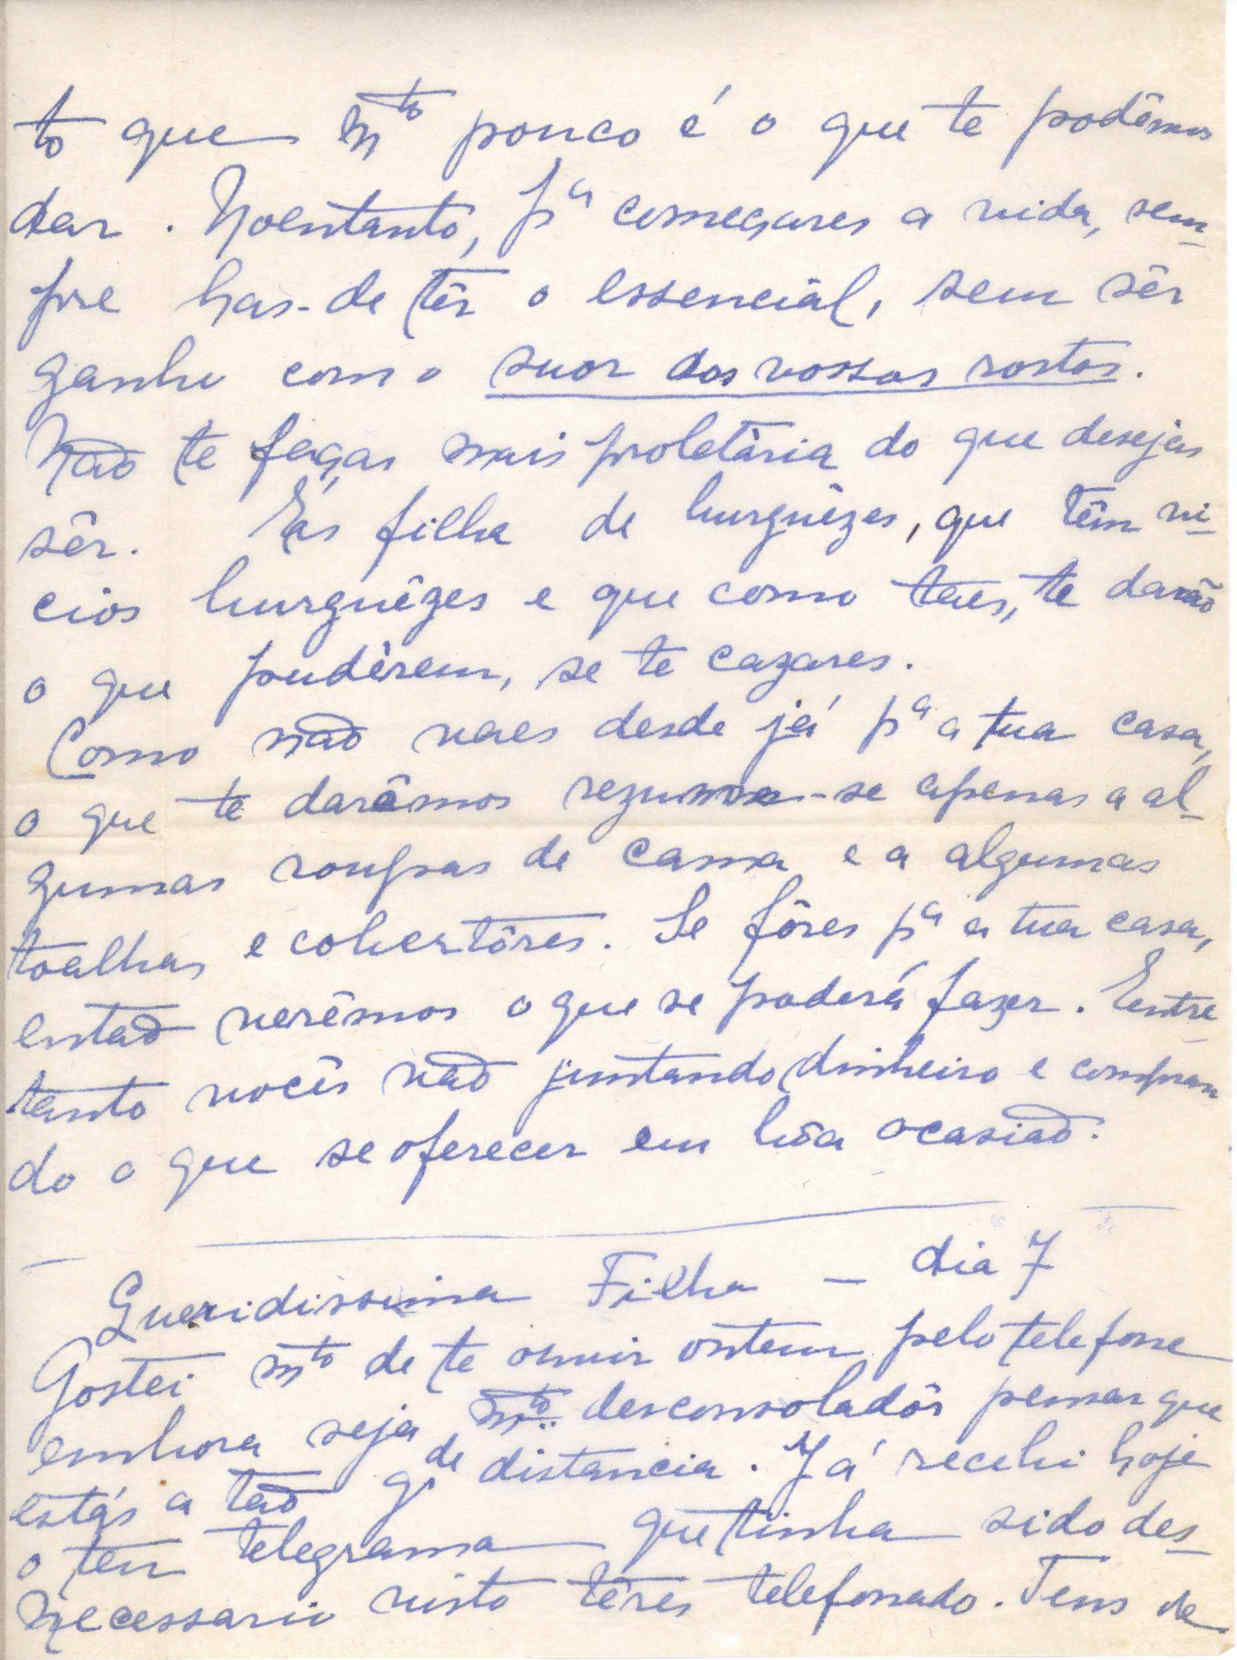 to que mto pouco é o que te podêmos
dar. Noentanto, pa começares a vida, sem-
pre has-de têr o essenciál, sem sêr
ganho com o suor dos vossos rostos.
Não te faças mais proletária do que desejas
sêr. És filha de burguêzes, que têm vi-
cios burguêzes e que como taes, te darão
o que pudérem, se te cazares.
Como não vaes desde já pa a tua casa,
o que te darêmos rezume-se apenas a al-
gumas roupas de cama e a algumas
toalhas e cobertôres. Se fôres pa a tua casa,
então verêmos o que se poderá fazer. Entre
tanto vocês vão juntando dinheiro e compran
do o que se oferecer em bôa ocasião.
Queridissima Filha — dia 7
Gostei mto de te ouvir ontem pelo telefone
embora seja mto desconsoladôr pensar que
estás a tão gde distancia. Já recebi hoje
o teu telegrama que tinha sido des-
necessario visto têres telefonado. Tens de